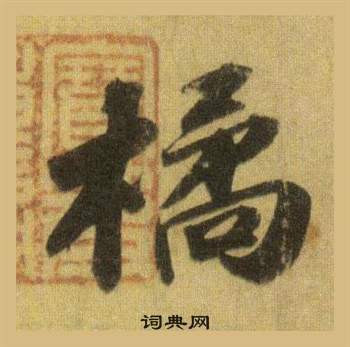 橘
词典网